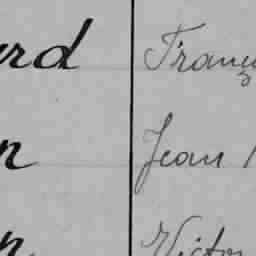 rd Franç
n Jean
n Victor